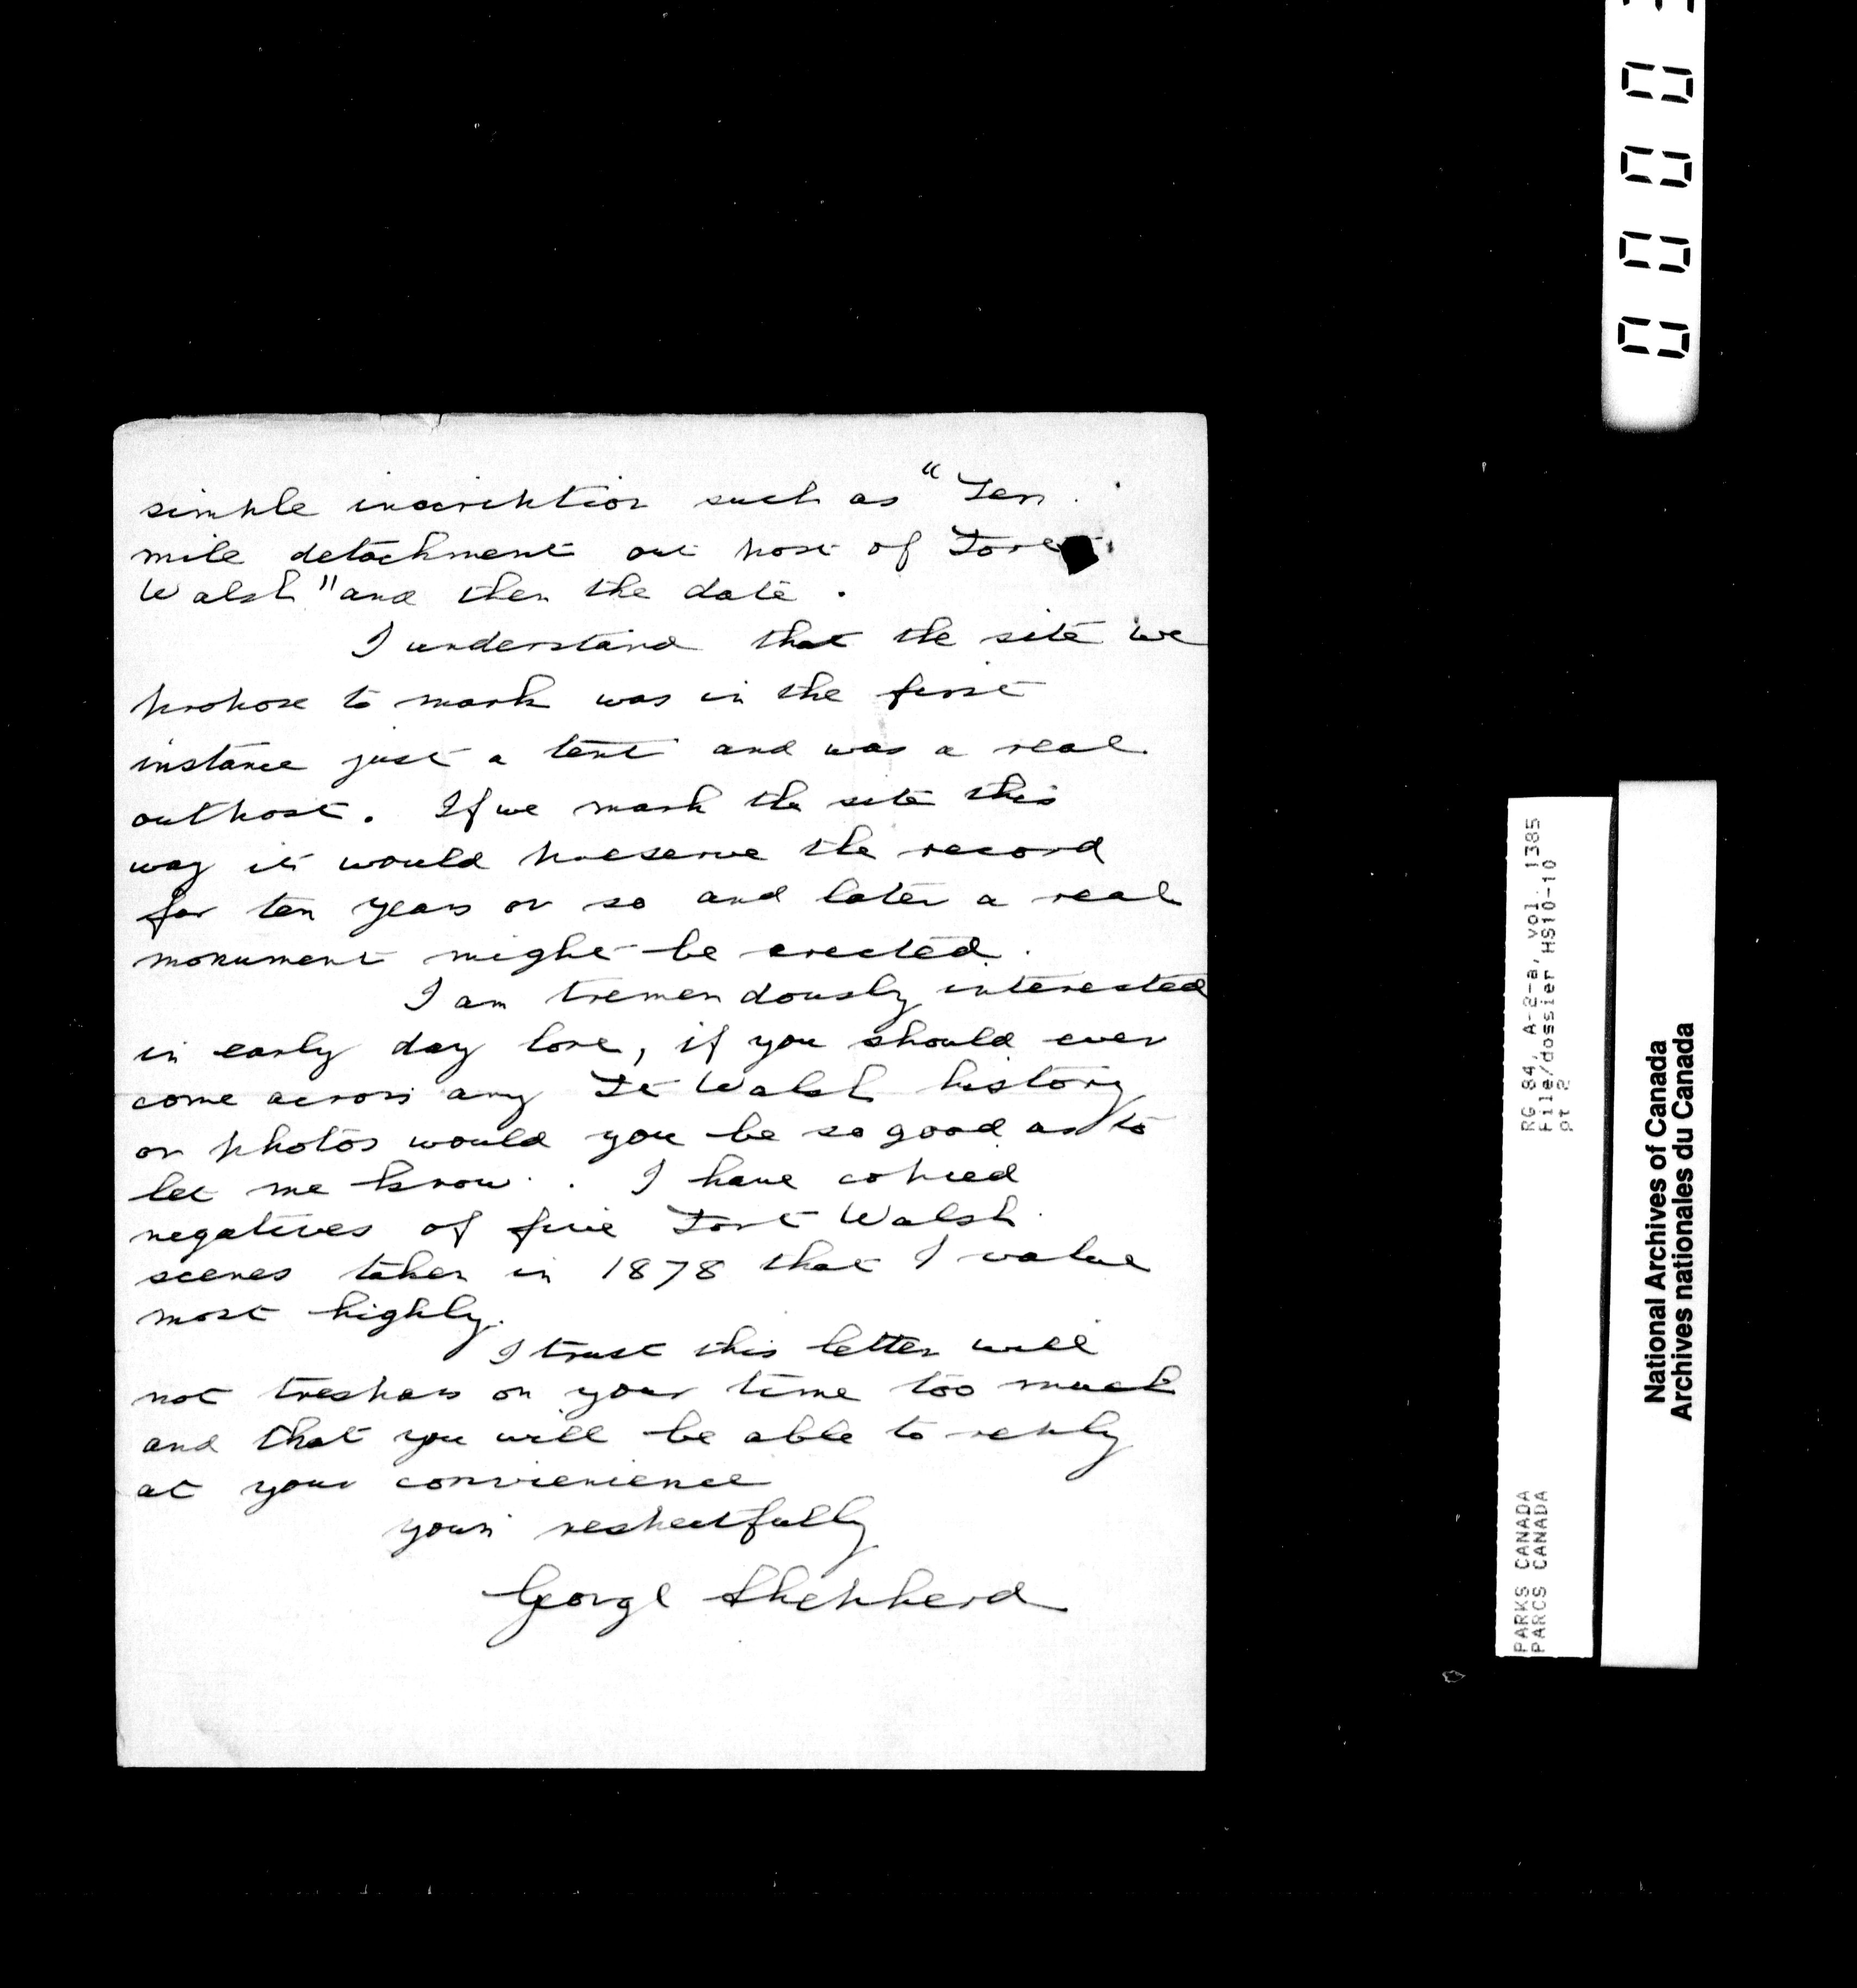 simple inscription such as "Ten
mile detachment out post of Fort
Walsh" and then the date.
I understand that the site we
propose to mark was in the first
instance just a tent and was a real
outpost. If we mark the site this
way it would preserve the record
for ten years or so and later a real
monument might be erected.
I am tremendously interested
in early day lore, if you should ever
come across any Ft Walsh history
or photos would you be so good as to
let me know. I have copied
negatives of five Fort Walsh
scenes taken in 1878 that I value
most highly.
I trust this letter will
not trespass on your time too much
and that you will be able to reply
at your convienience
yours respectfully
George Shepherd
RG 84, A-2-a, vol. 1385
File/dossier HS10-10
pt 2
PARKS CANADA
PARCS CANADA
National Archives of Canada
Archives nationales du Canada
0000